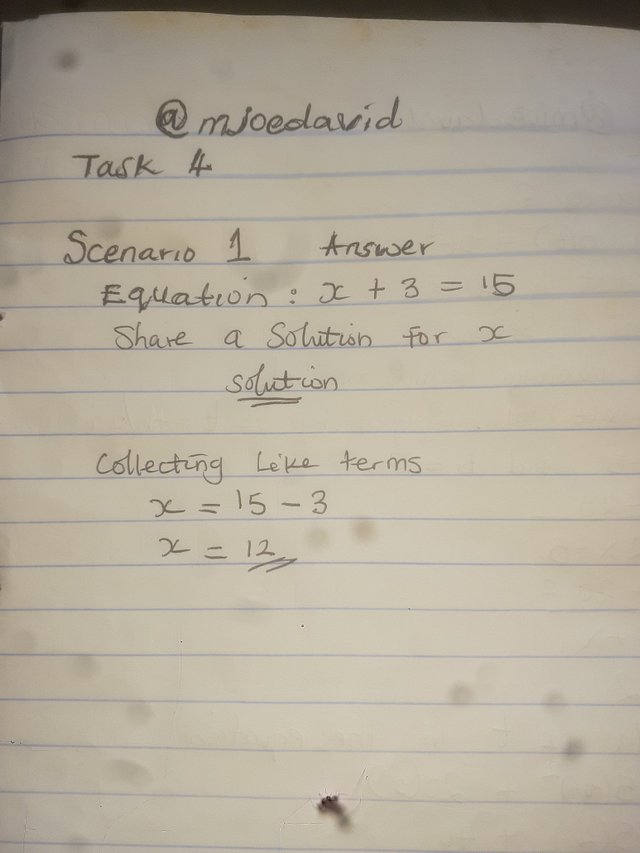 @mjoedavid
Task 4
Scenario 1 Answer
Equation : x + 3 = 15
Share a solution for x
solution
Collecting Like terms
x = 15 - 3
x = 12